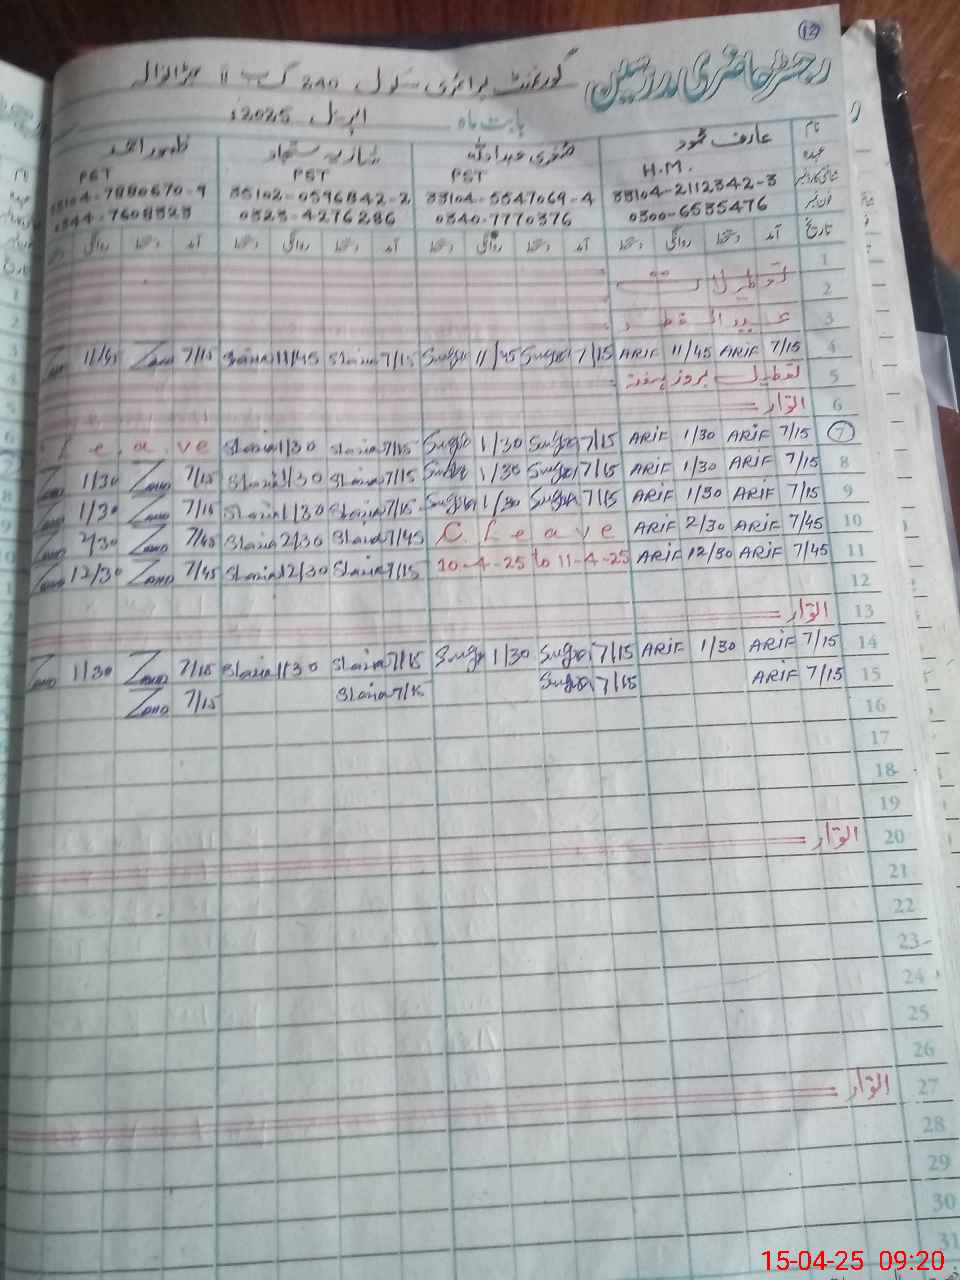 12
رجسٹر حاضری مدرسین گورنمنٹ پرائمری سکول 240 گ ب II جڑانوالہ
بابت ماہ اپریل 2025ء
نام عارف محمود صغری عبداللہ شازیہ سجاد ظہور احمد
عہدہ H.M. PST PST PST
شناختی کارڈ نمبر 33104-2112342-3 33104-5547069-4 35102-0596842-2 33104-7880670-9
فون نمبر 0300-6535476 0340-7770376 0323-4276286 0344-7608323
تاریخ آمد دستخط روانگی دستخط آمد دستخط روانگی دستخط آمد دستخط روانگی دستخط آمد دستخط روانگی
1
2 تعطیلات
3 عید الفطر
4 7/15 ARIF 11/45 ARIF 7/15 Sugra 11/45 Sugra 7/15 Shazia 11/45 Shazia 7/15 11/45
5 تعطیل بروز ہفتہ
6 اتوار
7 7/15 ARIF 1/30 ARIF 7/15 Sugra 1/30 Sugra 7/15 Shazia 1/30 Shazia Leave
8 7/15 ARIF 1/30 ARIF 7/15 Sugra 1/30 Sugra 7/15 Shazia 1/30 Shazia 7/15 1/30
9 7/15 ARIF 1/30 ARIF 7/15 Sugra 1/30 Sugra 7/15 Shazia 1/30 Shazia 7/15 1/30
10 7/45 ARIF 2/30 ARIF C. Leave 7/45 Shazia 2/30 Shazia 7/45 2/30
11 7/45 ARIF 12/30 ARIF 10-4-25 to 11-4-25 7/15 Shazia 12/30 Shazia 7/45 12/30
12
13 اتوار
14 7/15 ARIF 1/30 ARIF 7/15 Sugra 1/30 Sugra 7/15 Shazia 1/30 Shazia 7/15 1/30
15 7/15 ARIF 7/15 Sugra 7/15 Shazia 7/15
16
17
18
19
20 اتوار
21
22
23
24
25
26
27 اتوار
28
29
30
31
15-04-25 09:20